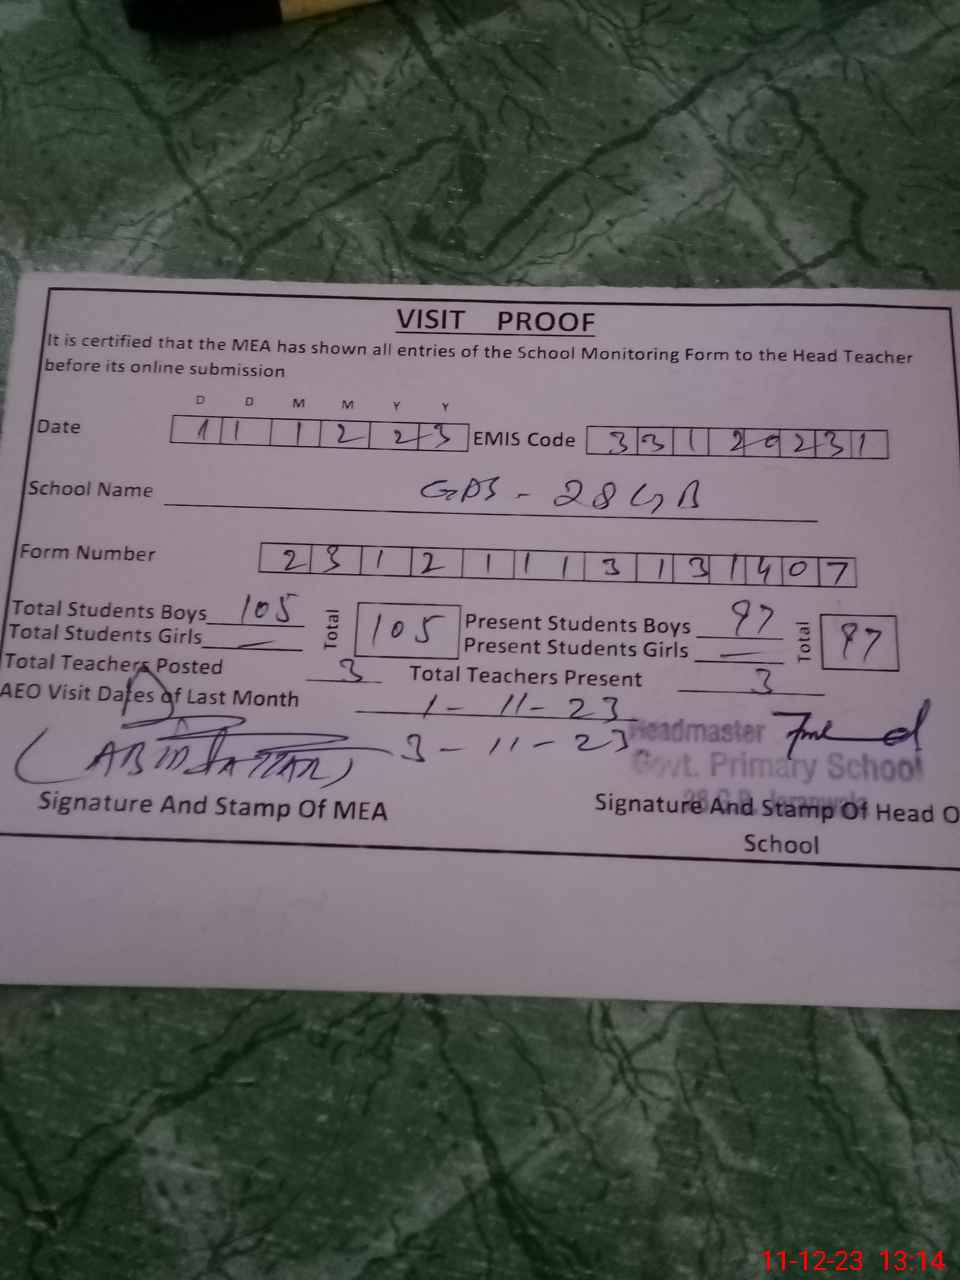 VISIT PROOF
It is certified that the MEA has shown all entries of the School Monitoring Form to the Head Teacher
before its online submission
D D M M Y Y
Date 11 12 23 EMIS Code 33129231
School Name GPS - 28 GB
Form Number 231211131407
Total Students Boys 105 Total 105 Present Students Boys 97 Total 97
Total Students Girls — Present Students Girls —
Total Teachers Posted 3 Total Teachers Present 3
AEO Visit Dates of Last Month 1-11-23
3-11-23
(ABID SATTAR)
Headmaster
Govt. Primary School
28 G.B. Jaranwala
Signature And Stamp Of MEA Signature And Stamp Of Head O
School
11-12-23 13:14